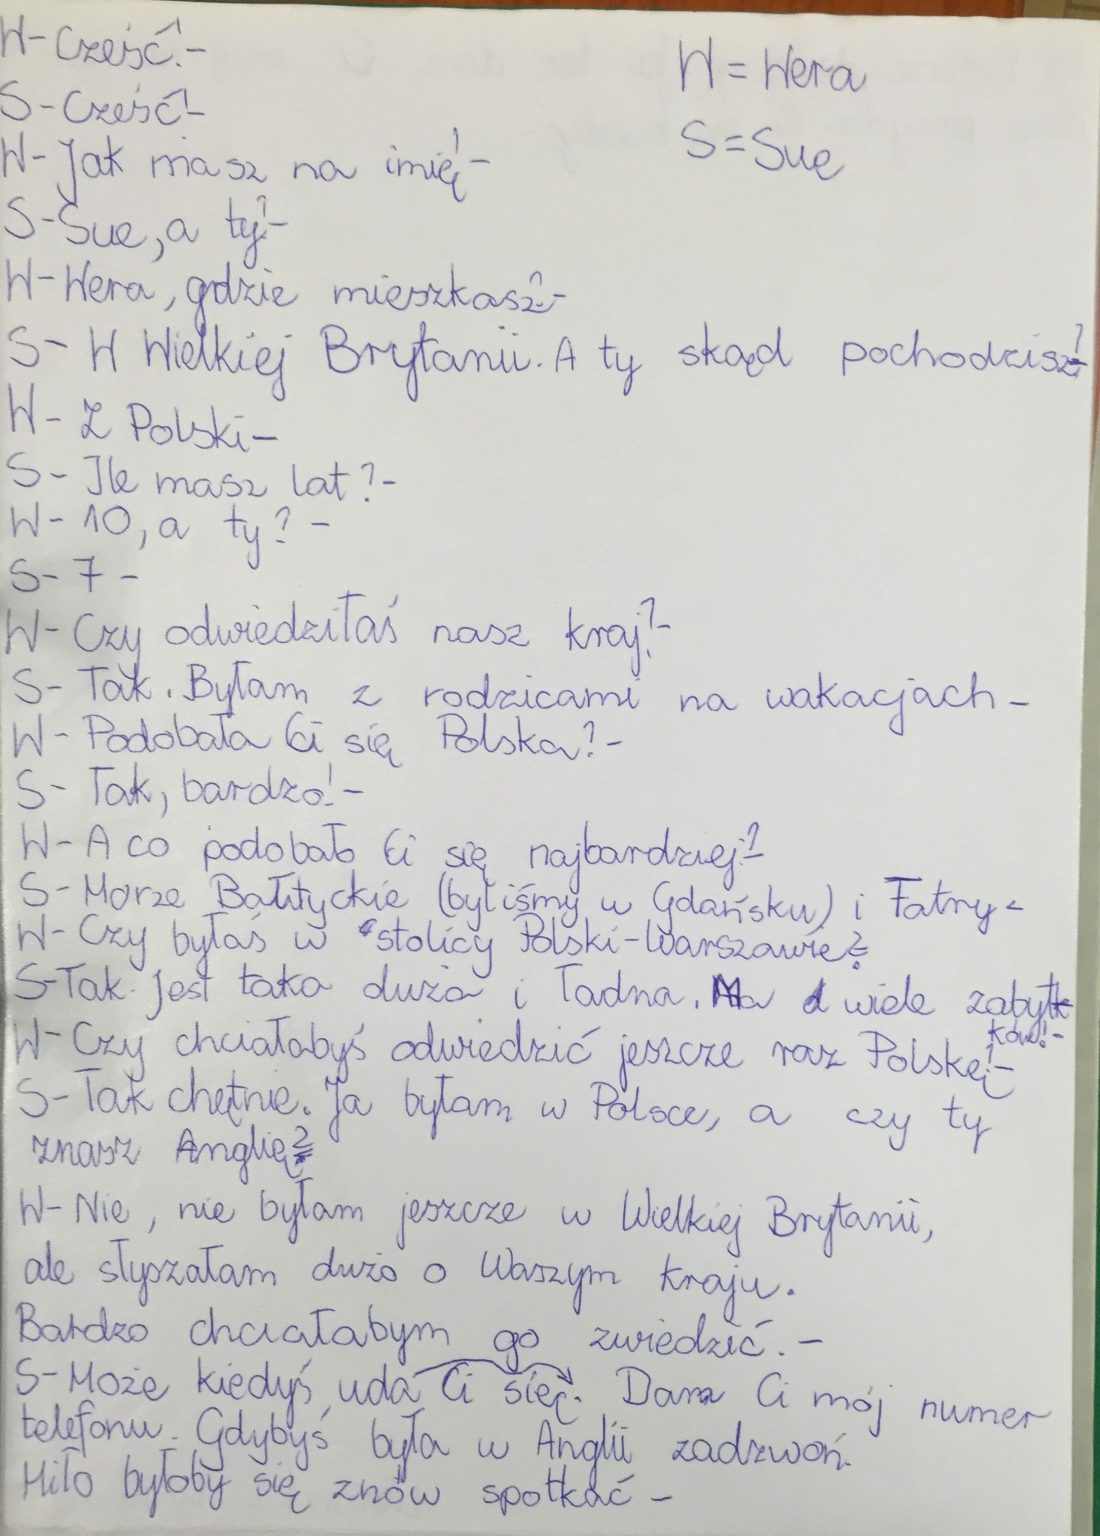 W- Cześć!-
W = Wera
S- Cześć!-
S = Sue
W- Jak masz na imię!-
S- Sue, a ty?-
W- Wera, gdzie mieszkasz?-
S- W Wielkiej Brytanii. A ty skąd pochodzisz?-
W- Z Polski-
S- Ile masz lat?-
W- 10, a ty? -
S- 7 -
W- Czy odwiedziłaś nasz kraj?-
S- Tak. Byłam z rodzicami na wakacjach -
W- Podobała Ci się Polska?-
S- Tak, bardzo!-
W- A co podobało Ci się najbardziej?-
S- Morze Bałtyckie (byliśmy w Gdańsku) i Tatry -
W- Czy byłaś w stolicy Polski-Warszawie?
S- Tak. Jest taka duża i ładna. Ma wiele zabyt
ków!-
W- Czy chciałabyś odwiedzić jeszcze raz Polskę?-
S- Tak chętnie. Ja byłam w Polsce, a czy ty
znasz Anglię?
W- Nie, nie byłam jeszcze w Wielkiej Brytanii,
ale słyszałam dużo o Waszym kraju.
Bardzo chciałabym go zwiedzić. -
S- Może kiedyś uda Ci się. Dam Ci mój numer
telefonu. Gdybyś była w Anglii zadzwoń.
Miło byłoby się znów spotkać -